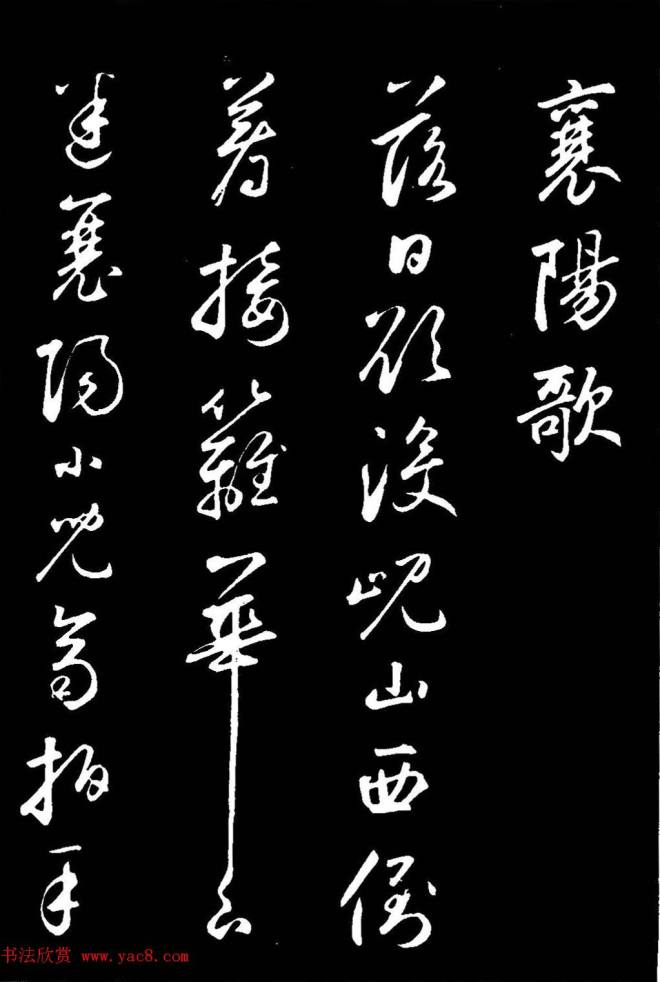 襄陽歌
落日欲没岘山西倒
着接籬華下
迷襄陽小兒齊拍手
书法欣赏 www.yac8.com